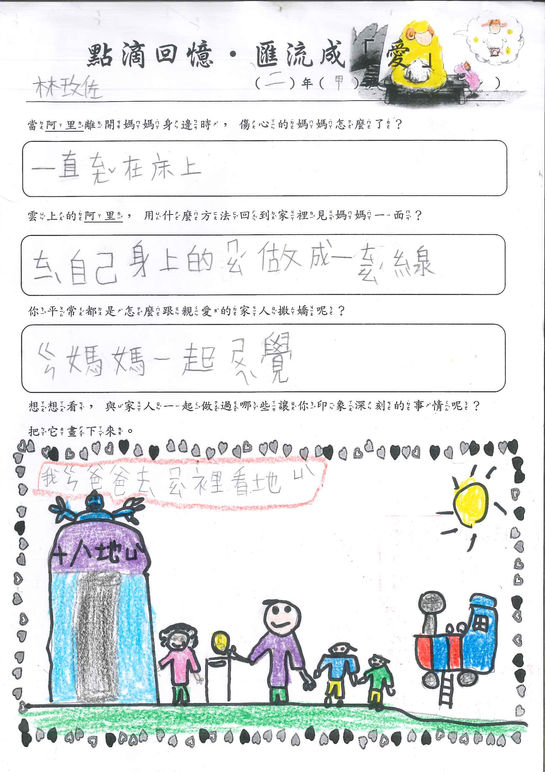 點滴回憶‧匯流成「愛」
(二)年(甲)
林玫佐
當阿里離開媽媽身邊時，傷心的媽媽怎麼了？
一直ㄊㄤˇ在床上
雲上的阿里，用什麼方法回到家裡見媽媽一面？
自己身上的 做成一 線
你平常都是怎麼跟親愛的家人撒嬌呢？
ㄍㄣ媽媽一起 覺
想想看，與家人一起做過哪些讓你印象深刻的事情呢？
把它畫下來。
我 爸爸去 裡看地ㄩˋ
十八地ㄩˋ